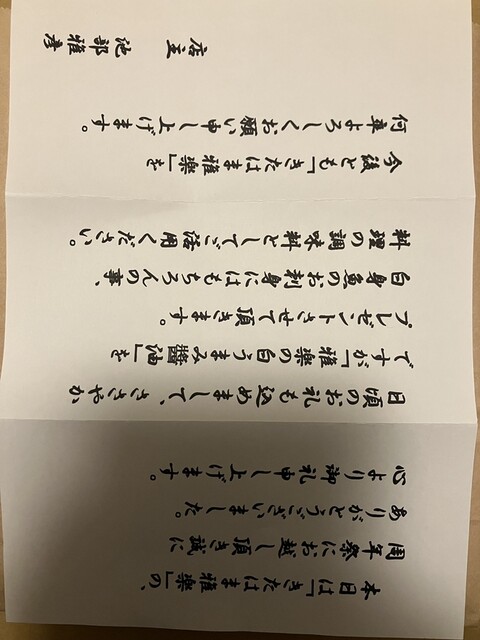 本日は「きたはま雅楽」の、
周年祭にお越し頂き誠に
ありがとうございました。
心より御礼申し上げます。
日頃のお礼も込めまして、ささやか
ですが「雅楽の白うまみ醤油」を
プレゼントさせて頂きます。
白身魚のお刺身にはもちろんの事、
料理の調味料としてご活用ください。
今後とも「きたはま雅楽」を
何卒よろしくお願い申し上げます。
店主 池部雅彦